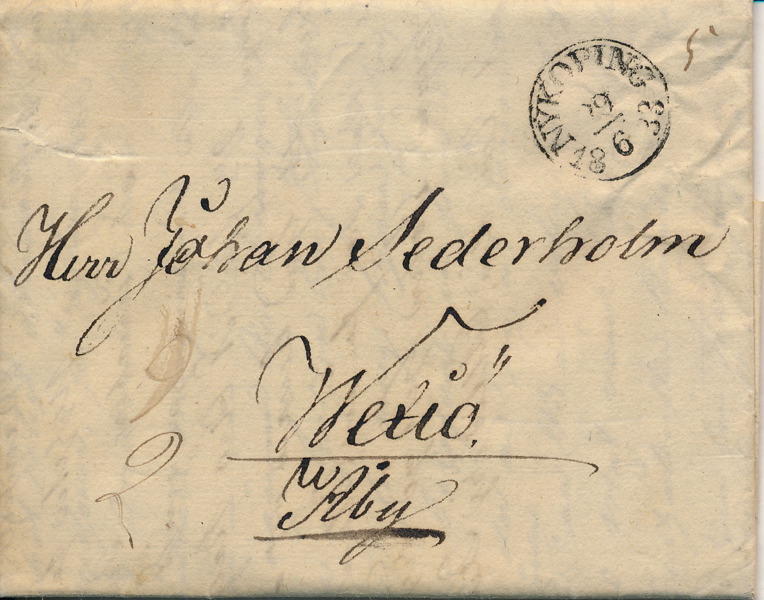 5
NYKÖPING
19/6
1833
Herr Johan Sederholm
Wexiö
W Åby
2